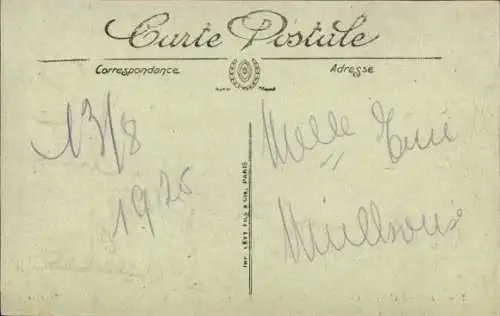 Carte Postale
Correspondance
Adresse
13/8
1925
Melle
IMP. LÉVY FILS & Cie, PARIS